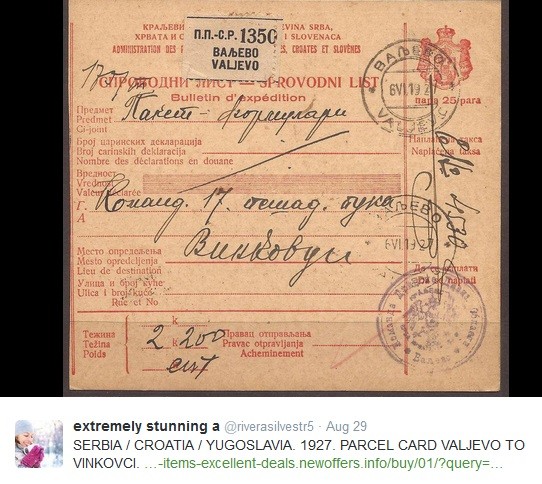 КРАЉЕВИ ЕВИНА СРБА,
ХРВАТА И С И СЛОВЕНАЦА
ADMINISTRATION DES ES, CROATES ET SLOVÈNES
П.П.-С.Р. 1350
ВАЉЕВО
VALJEVO
СПРОВОДНИ ЛИСТ — SPROVODNI LIST
Bulletin d'expédition
пара 25 para
ВАЉЕВО
6VI.19 27
VALJEVO
Предмет
Predmet
Ci-joint
Пакет - формулари
Број царинских декларација
Broj carinskih deklaracija
Nombre des déclarations en douane
Наплаћена такса
Naplaćena taksa
Вредност
Vrednost
Valeur déclarée
Г.
А
Команд. 17. пешад. пука
Винковци
ВАЉЕВО
6VI.19 27
Место опредељења
Mesto opredjeljenja
Lieu de destination
Улица и број куће
Ulica i broj kuće
Rue et No
До
Тежина
Težina
Poids
k
2 200
k
Правац отправљања
Pravac otpravljanja
Acheminement
extremely stunning a @riverasilvestr5 · Aug 29
SERBIA / CROATIA / YUGOSLAVIA. 1927. PARCEL CARD VALJEVO TO
VINKOVCI. …-items-excellent-deals.newoffers.info/buy/01/?query=…